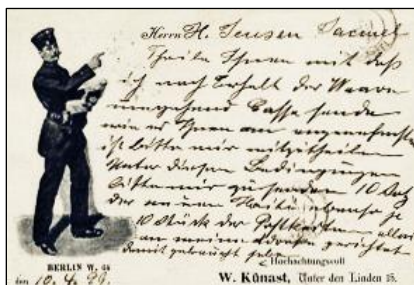 Herrn H. Jensen Jacmel
Theile Ihnen mit daß
ich nach Erhalt der Waare
umgehend Casse sende
wie es Ihnen am angenehmsten
ist bitte mir mitzutheilen
Unter diesen Bedingungen
bitte mir zu senden 10 Satz
der neuen
10 Stück der Postkarten alle
an meine Adresse gerichtet
damit gebraucht
Hochachtungsvoll
BERLIN W. 64
den 10. 4. 99.
W. Künast, Unter den Linden 15.